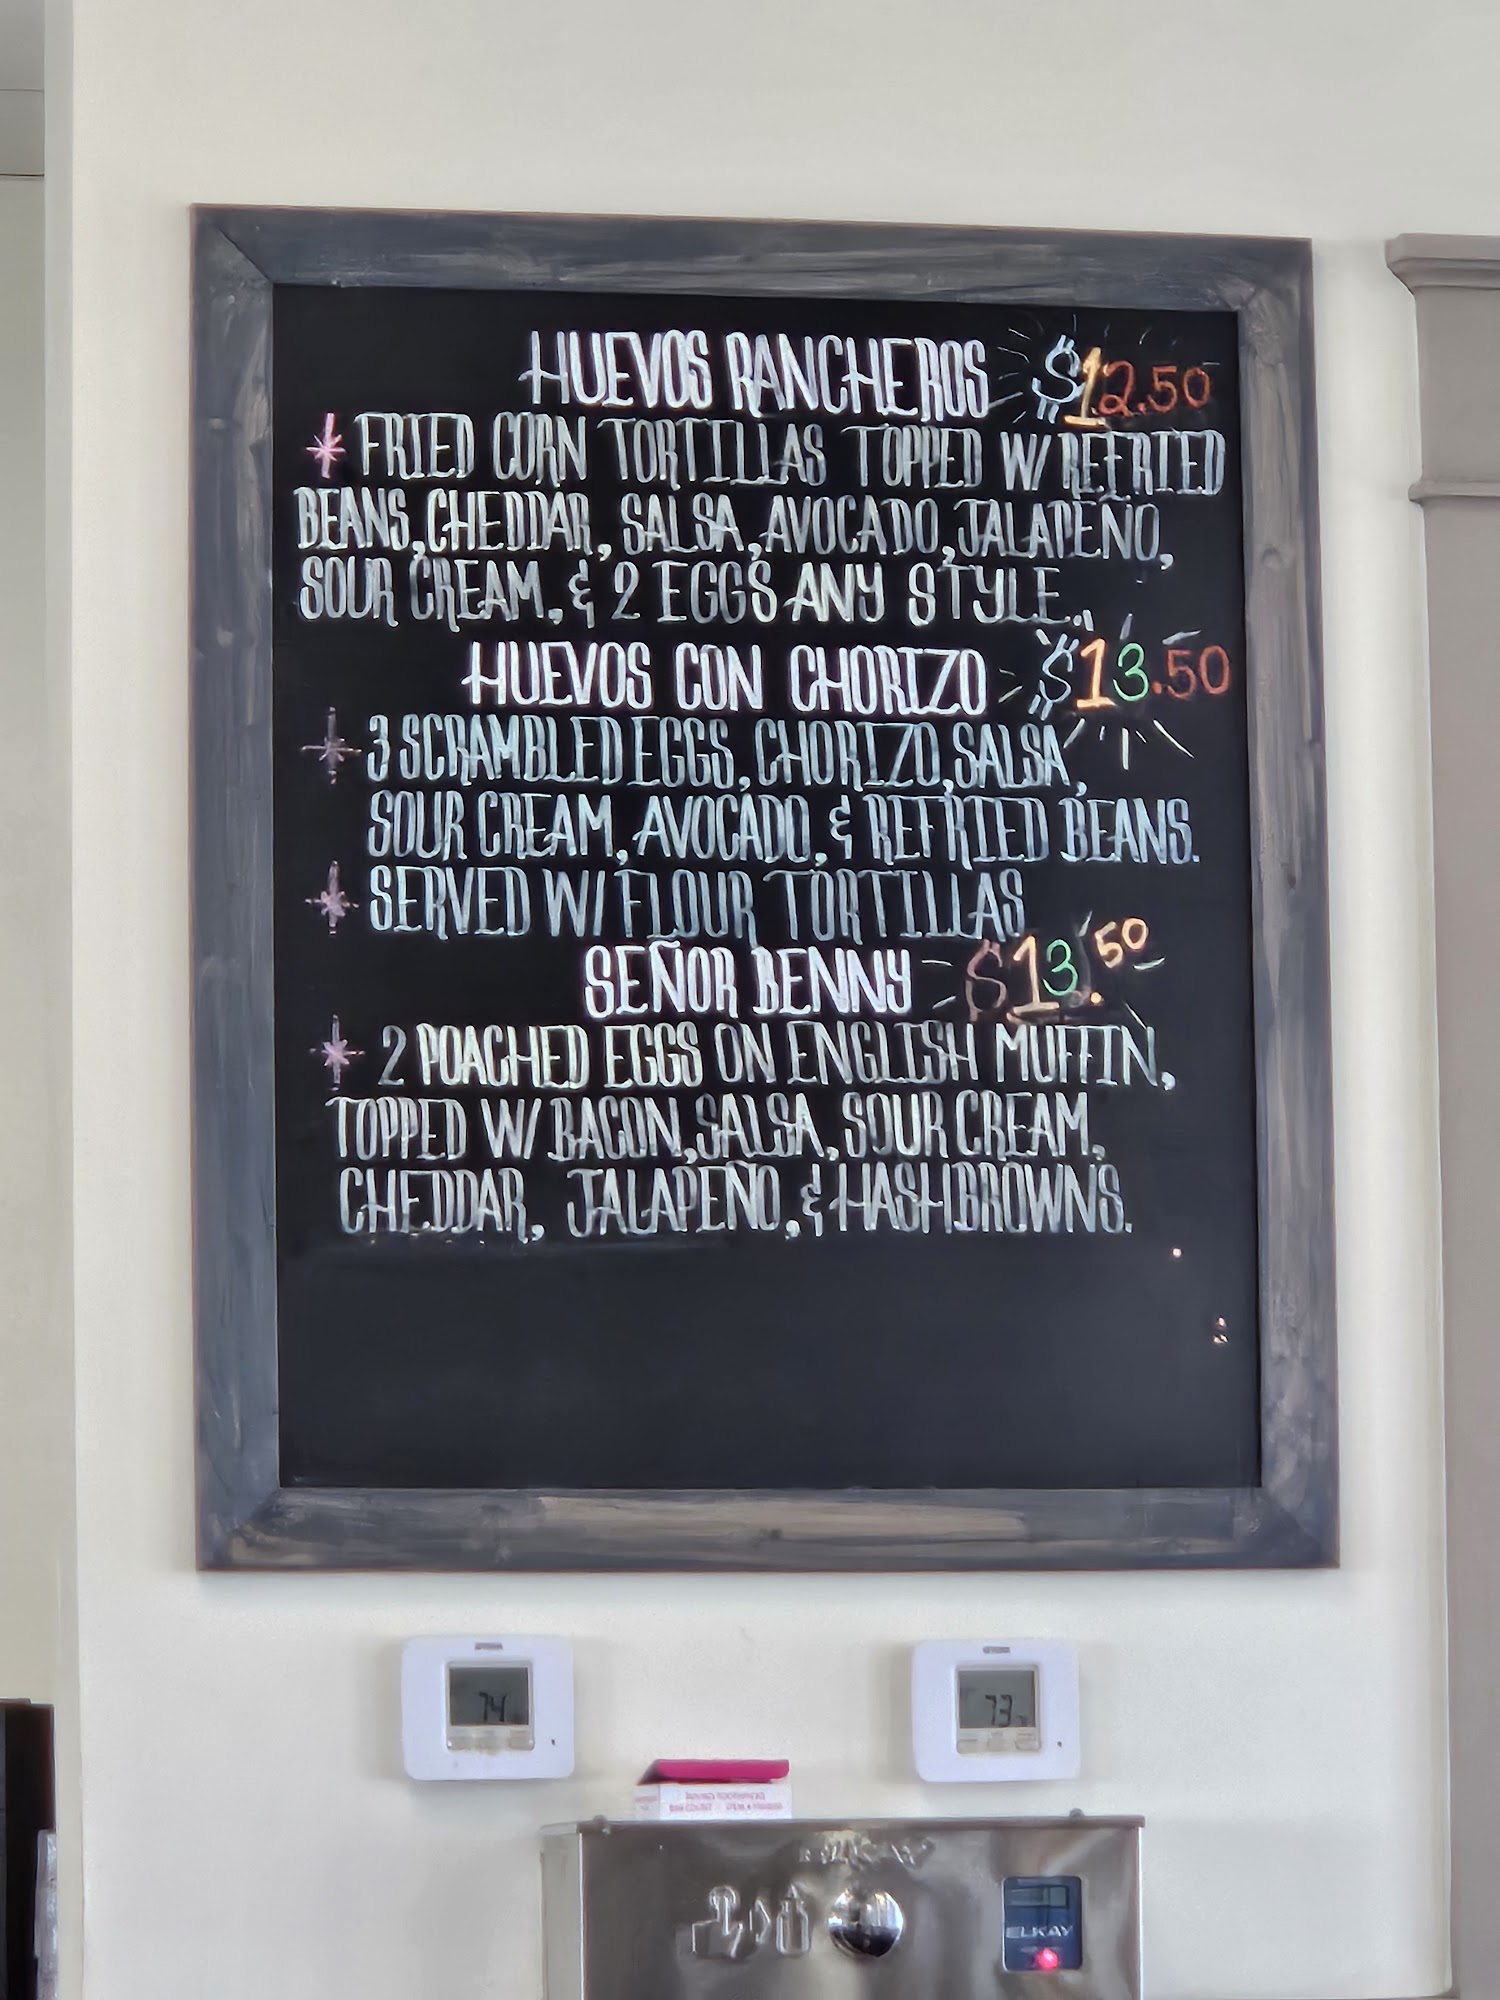 HUEVOS RANCHEROS $12.50
* FRIED CORN TORTILLAS TOPPED W/ REFRIED
BEANS, CHEDDAR, SALSA, AVOCADO, JALAPEÑO,
SOUR CREAM, & 2 EGGS ANY STYLE..
HUEVOS CON CHORIZO $13.50
* 3 SCRAMBLED EGGS, CHORIZO, SALSA,
SOUR CREAM, AVOCADO, & REFRIED BEANS.
* SERVED W/ FLOUR TORTILLAS
SEÑOR BENNY $13.50
* 2 POACHED EGGS ON ENGLISH MUFFIN,
TOPPED W/ BACON, SALSA, SOUR CREAM,
CHEDDAR, JALAPEÑO, & HASHBROWNS.
74
73
ELKAY
ELKAY